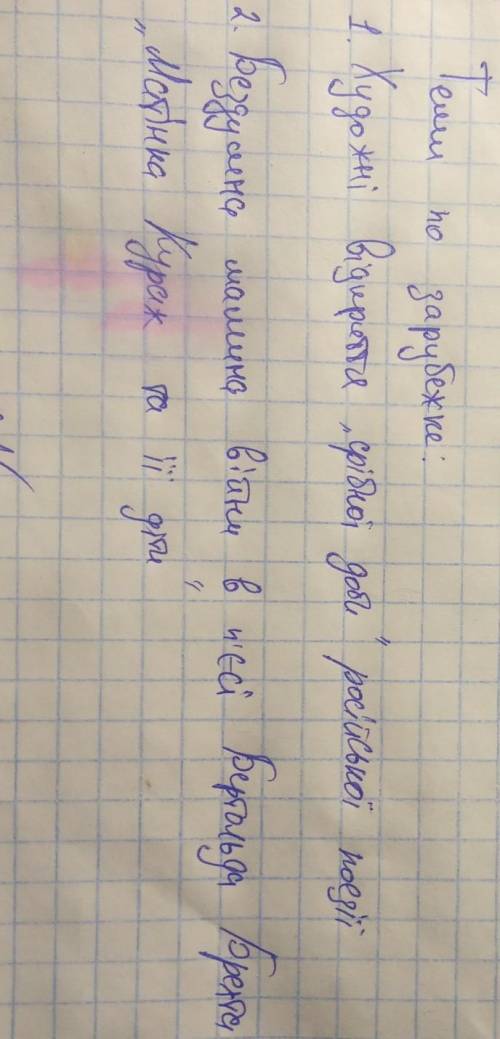 Теми по зарубежке:
1. Художні відкриття „срібної доби" російської поезії
2. Бездушна машина війни в п'єсі Бертольда Брехта
„Матінка Кураж та її діти"